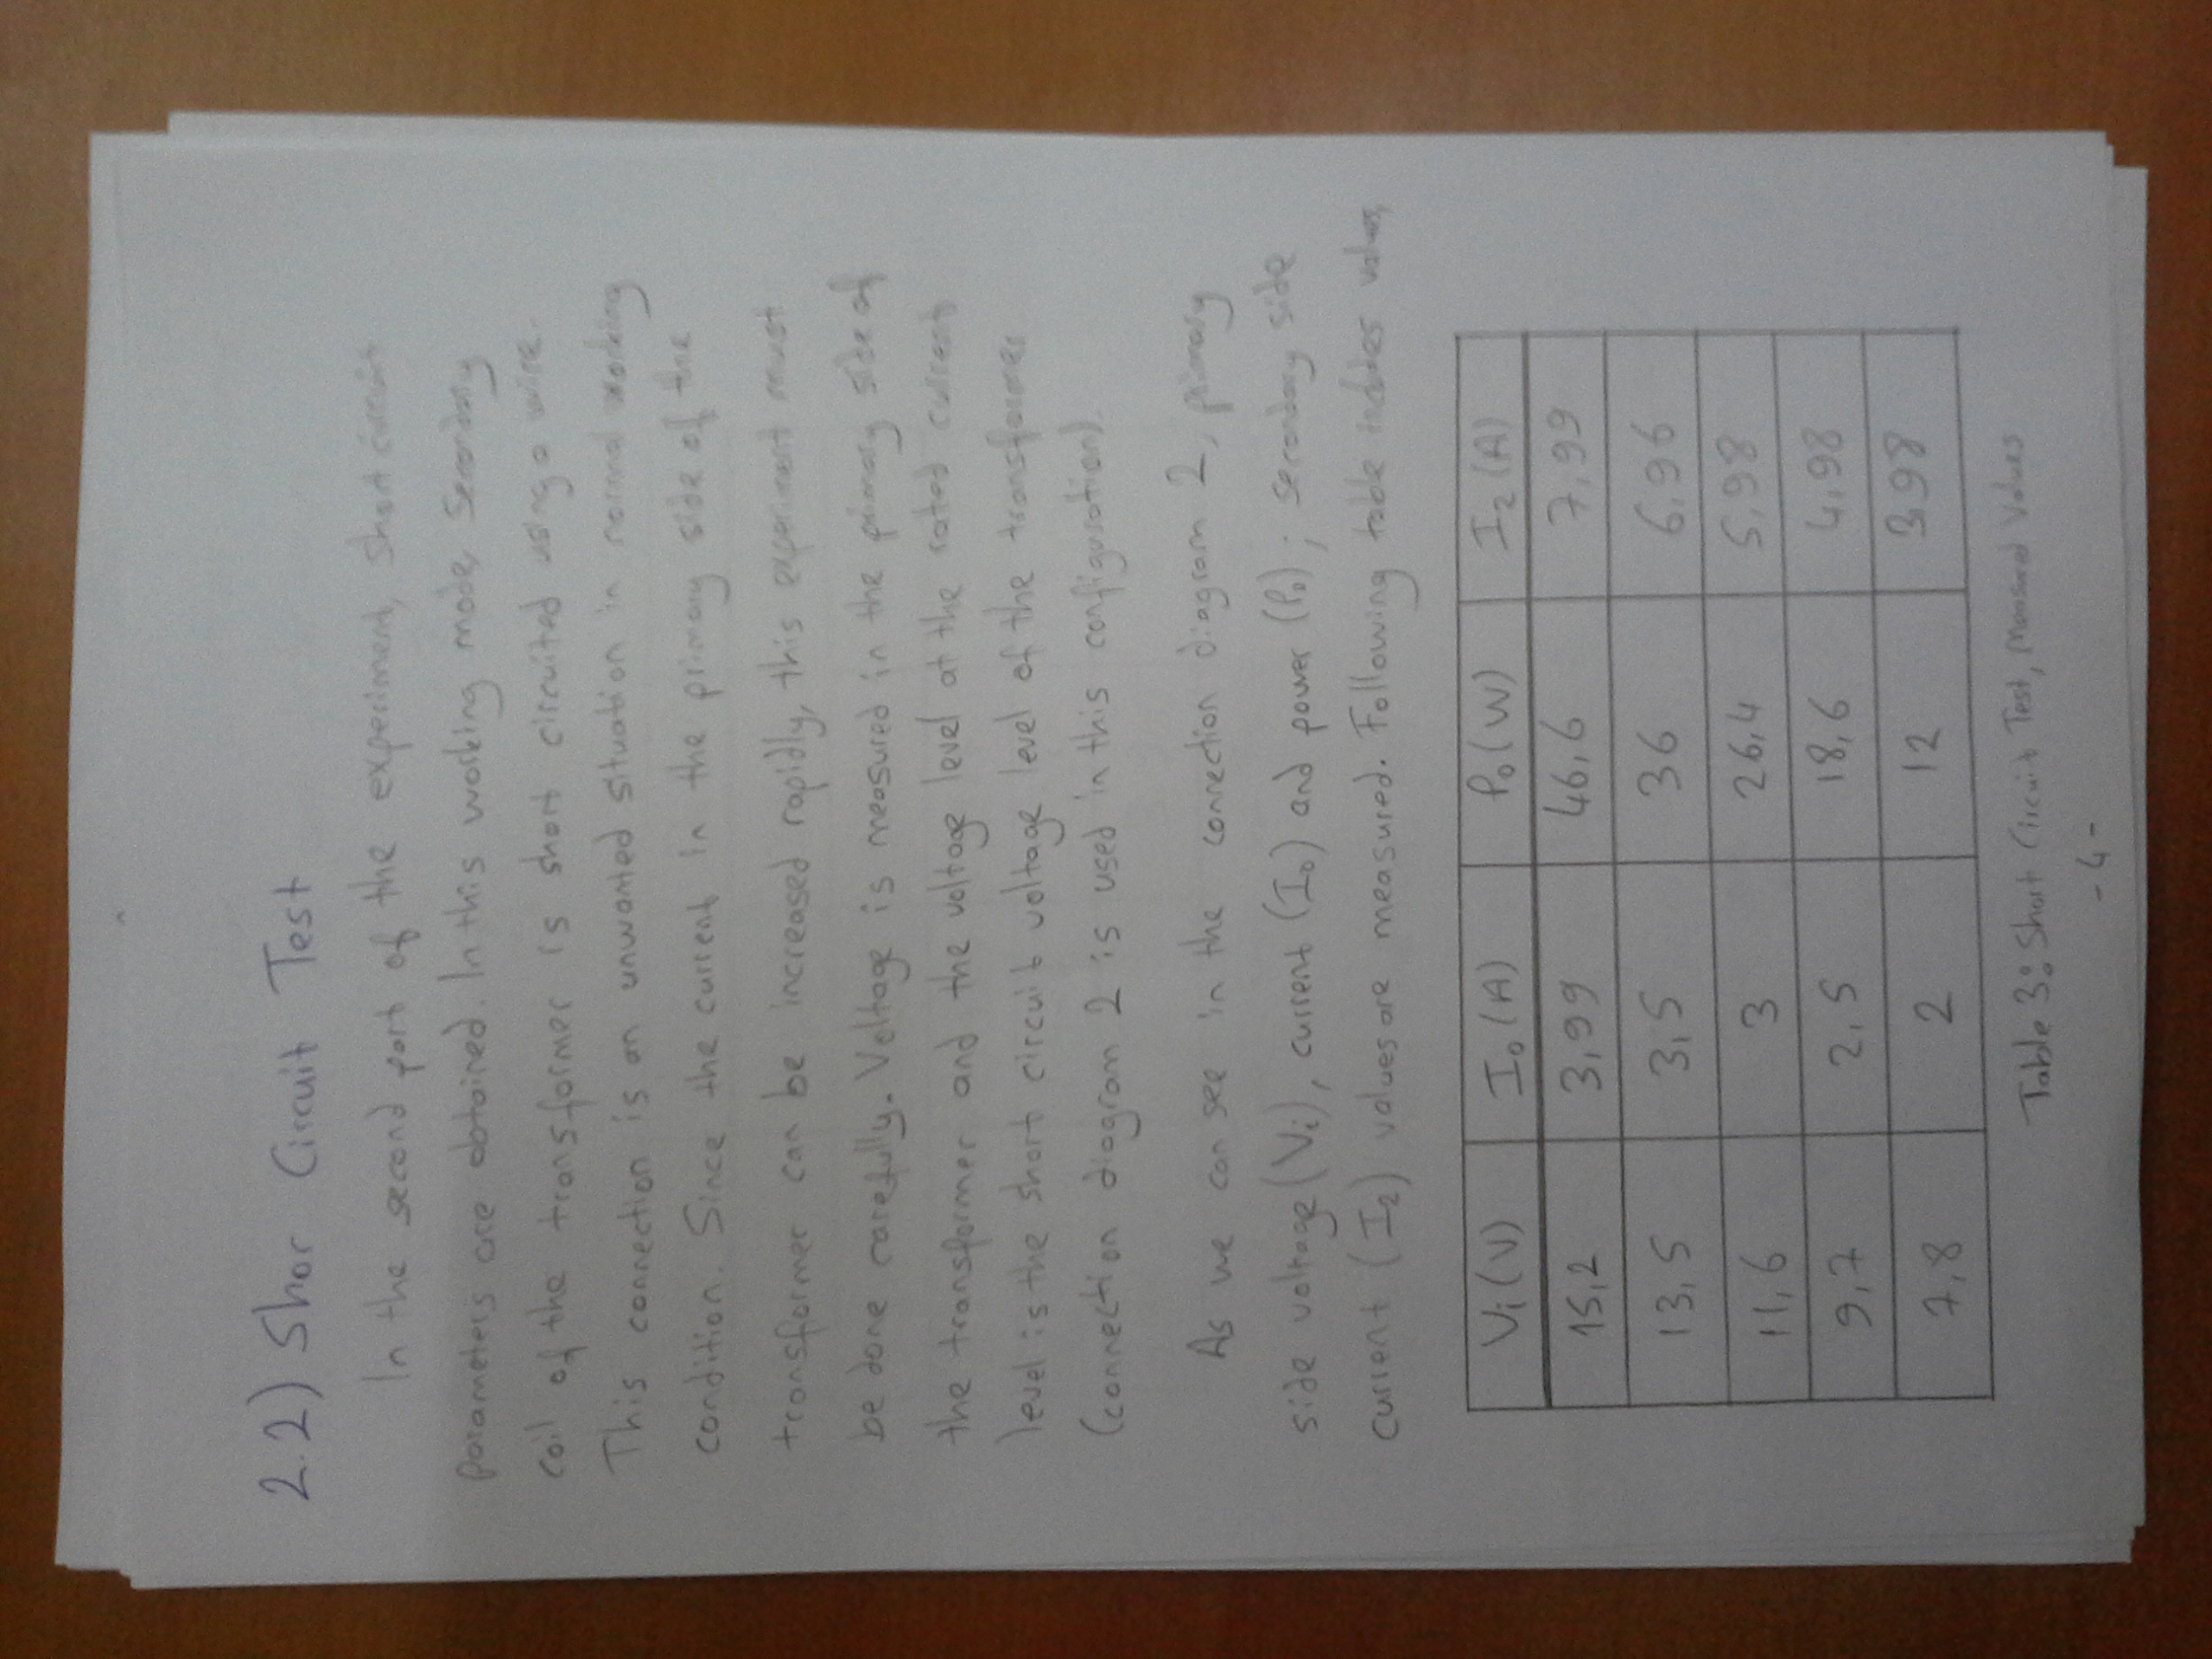 2.2) Shor Circuit Test
In the second part of the experiment, short circuit
parameters are obtained. In this working mode, secondary
coil of the transformer is short circuited using a wire.
This connection is an unwanted situation in normal working
condition. Since the current in the primary side of the
transformer can be increased rapidly, this experiment must
be done carefully. Voltage is measured in the primary side of
the transformer and the voltage level at the rated current
level is the short circuit voltage level of the transformer
(connection diagram 2 is used in this configuration).
As we can see in the connection diagram 2, primary
side voltage (Vi), current (I0) and power (P0); secondary side
current (I2) values are measured. Following table includes values,
Vi (V) I0 (A) P0 (W) I2 (A)
15,2 3,99 46,6 7,99
13,5 3,5 36 6,96
11,6 3 26,4 5,98
9,7 2,5 18,6 4,98
7,8 2 12 3,98
Table 3: Short Circuit Test, Measured Values
-4-